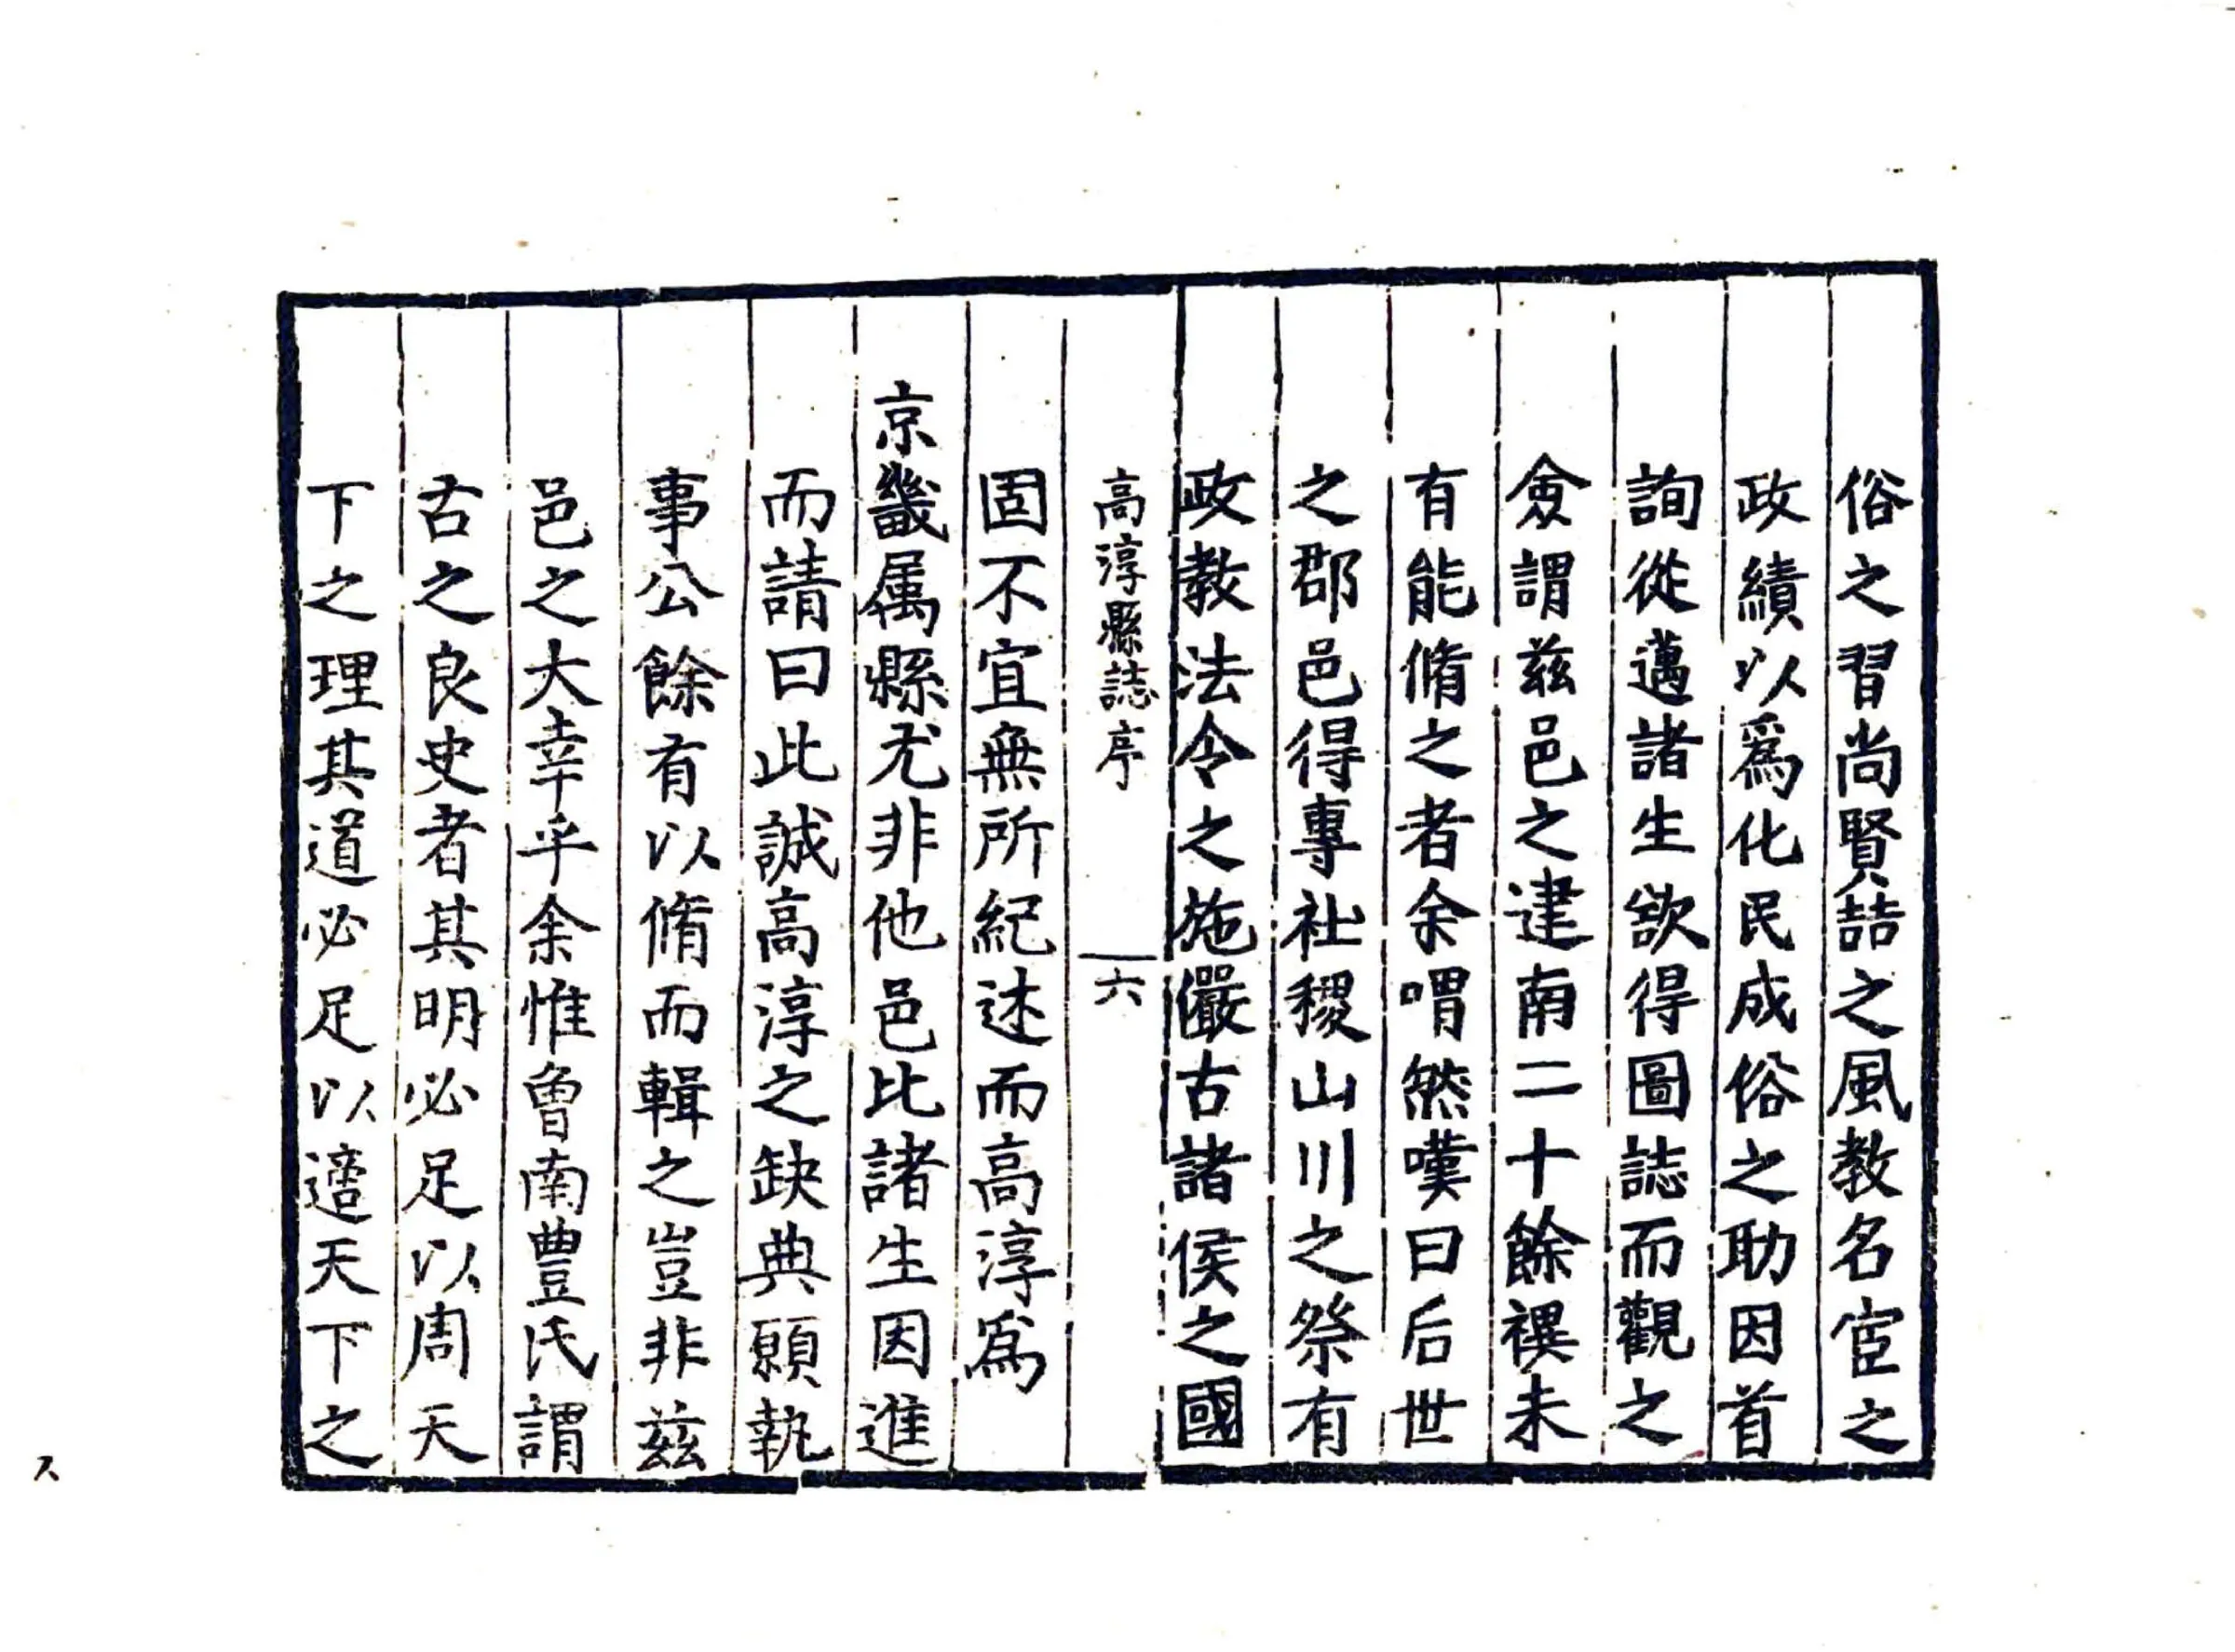 俗之習尚賢喆之風教名宦之
政績以爲化民成俗之助因首
詢從邁諸生欲得圖誌而觀之
僉謂兹邑之建南二十餘禩未
有能脩之者余喟然嘆曰后世
之郡邑得專社稷山川之祭有
政教法令之施儼古諸侯之國
高淳縣誌序
六
固不宜無所紀述而高淳爲
京畿属縣尤非他邑比諸生因進
而請曰此誠高淳之缺典願執
事公餘有以脩而輯之豈非兹
邑之大幸乎余惟曾南豐氏謂
古之良史者其明必足以周天
下之理其道必足以適天下之